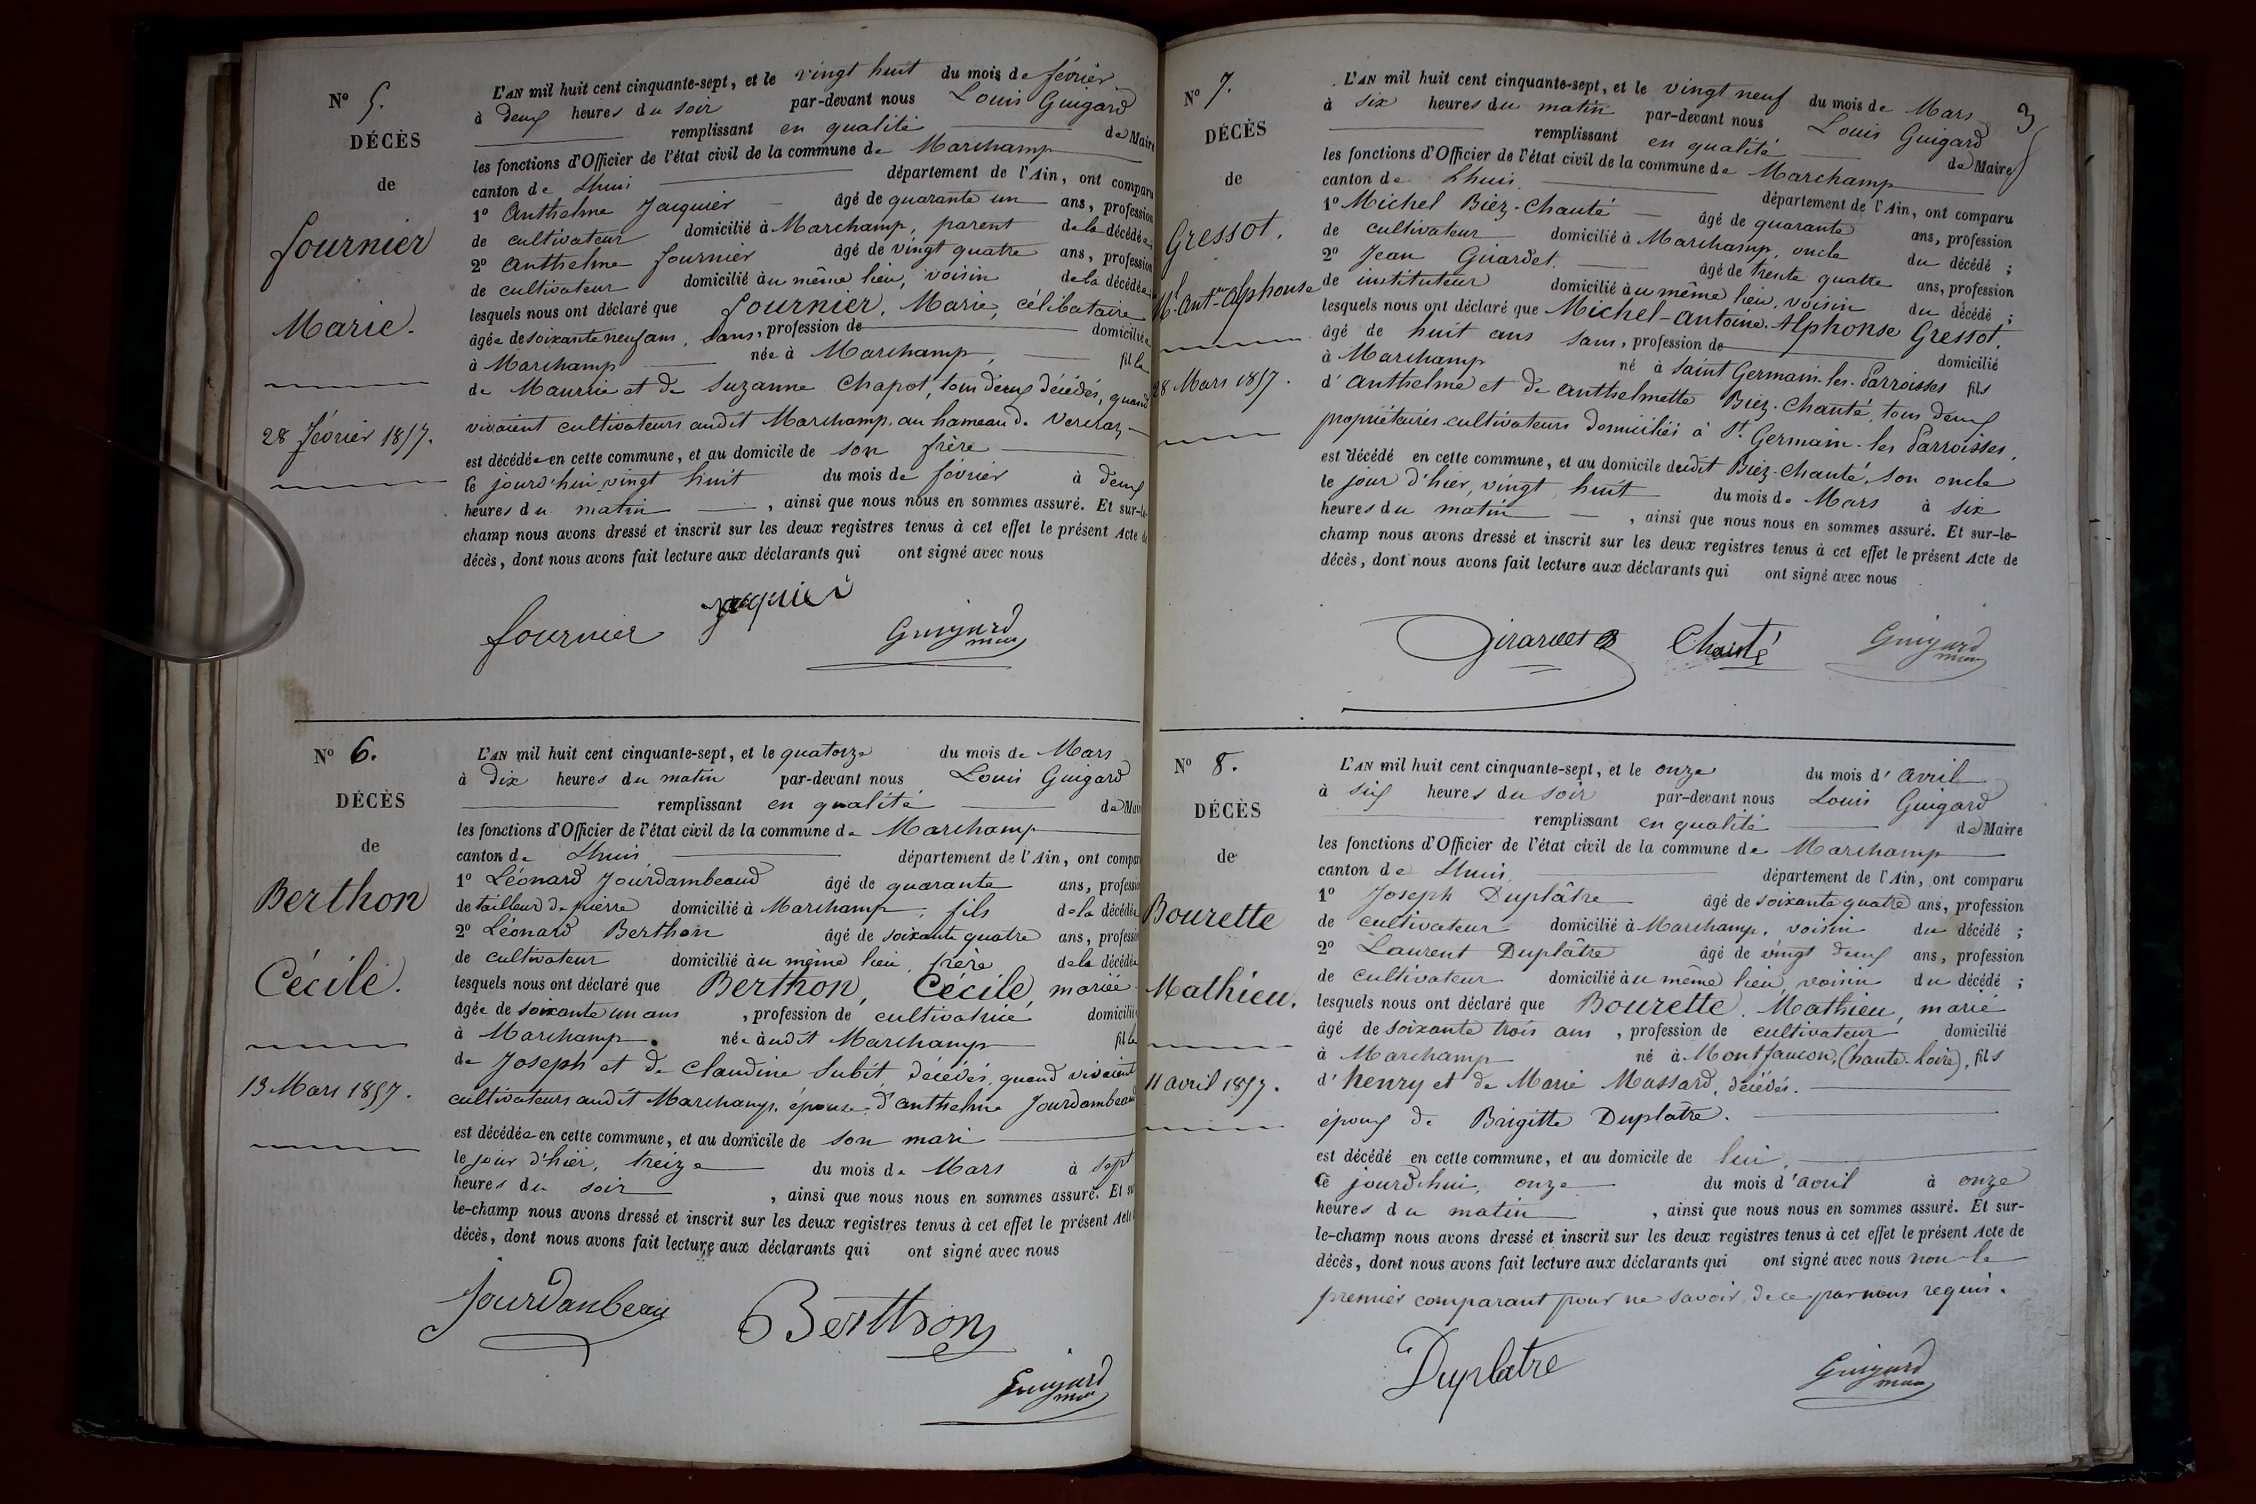 N° 5.
DÉCÈS
de
Fournier
Marie.
28 Février 1857.
L'AN mil huit cent cinquante-sept, et le vingt huit du mois de février
à deux heures du soir par-devant nous Louis Guigard
remplissant en qualité de Maire
les fonctions d'Officier de l'état civil de la commune de Marchamp
canton de Lhuis département de l'Ain, ont comparu
1° Anthelme Jacquier âgé de quarante un ans, profession
de cultivateur domicilié à Marchamp, parent de la décédée
2° Anthelme Fournier âgé de vingt quatre ans, profession
de cultivateur domicilié au même lieu, voisin de la décédée
lesquels nous ont déclaré que Fournier, Marie, célibataire
âgée de soixante neuf ans, sans, profession de domiciliée
à Marchamp née à Marchamp, fille
de Maurice et de Suzanne Chapot, tous deux décédés, quand
vivaient cultivateurs audit Marchamp, au hameau de
est décédée en cette commune, et au domicile de son frère
le jourd'hui vingt huit du mois de février à deux
heures du matin, ainsi que nous nous en sommes assuré. Et sur-le-
champ nous avons dressé et inscrit sur les deux registres tenus à cet effet le présent Acte de
décès, dont nous avons fait lecture aux déclarants qui ont signé avec nous
Fournier Jacquier Guigard maire
N° 6.
DÉCÈS
de
Berthon
Cécile.
13 Mars 1857.
L'AN mil huit cent cinquante-sept, et le quatorze du mois de Mars
à dix heures du matin par-devant nous Louis Guigard
remplissant en qualité de Maire
les fonctions d'Officier de l'état civil de la commune de Marchamp
canton de Lhuis, département de l'Ain, ont comparu
1° Léonard Jourdambeaud âgé de quarante ans, profession
de tailleur de pierre domicilié à Marchamp, fils de la décédée
2° Léonard Berthon âgé de soixante quatre ans, profession
de cultivateur domicilié au même lieu, frère de la décédée
lesquels nous ont déclaré que Berthon, Cécile, mariée
âgée de soixante un ans, profession de cultivatrice domiciliée
à Marchamp née audit Marchamp fille
de Joseph et de Claudine Subit, décédés, quand vivaient
cultivateurs audit Marchamp, épouse d'Anthelme Jourdambeaud
est décédée en cette commune, et au domicile de son mari
le jour d'hier, treize du mois de Mars à sept
heures du soir, ainsi que nous nous en sommes assuré. Et sur-
le-champ nous avons dressé et inscrit sur les deux registres tenus à cet effet le présent Acte
décès, dont nous avons fait lecture aux déclarants qui ont signé avec nous
Jourdanbeau Berthon
Guigard maire
3
N° 7.
DÉCÈS
de
Gressot.
Mel Antne Alphonse
28 Mars 1857.
L'AN mil huit cent cinquante-sept, et le vingt neuf du mois de Mars
à six heures du matin par-devant nous Louis Guigard
remplissant en qualité de Maire
les fonctions d'Officier de l'état civil de la commune de Marchamp
canton de Lhuis, département de l'Ain, ont comparu
1° Michel Biez-Chanté âgé de quarante ans, profession
de cultivateur domicilié à Marchamp, oncle du décédé ;
2° Jean Girardet. âgé de trente quatre ans, profession
de instituteur domicilié au même lieu, voisin du décédé ;
lesquels nous ont déclaré que Michel-Antoine-Alphonse Gressot,
âgé de huit ans sans, profession de domicilié
à Marchamp né à Saint Germain-les-Parroisses fils
d'Anthelme et de Anthelmette Biez-Chanté, tous deux
propriétaires-cultivateurs domiciliés à St Germain-les Parroisses,
est décédé en cette commune, et au domicile dudit Biez-Chanté, son oncle
le jour d'hier, vingt huit du mois de Mars à six
heures du matin, ainsi que nous nous en sommes assuré. Et sur-le-
champ nous avons dressé et inscrit sur les deux registres tenus à cet effet le présent Acte de
décès, dont nous avons fait lecture aux déclarants qui ont signé avec nous
Girardet Chanté Guigard maire
N° 8.
DÉCÈS
de
Bourette
Mathieu.
11 avril 1857.
L'AN mil huit cent cinquante-sept, et le onze du mois d'avril
à six heures du soir par-devant nous Louis Guigard
remplissant en qualité de Maire
les fonctions d'Officier de l'état civil de la commune de Marchamp
canton de Lhuis, département de l'Ain, ont comparu
1° Joseph Duplâtre âgé de soixante quatre ans, profession
de cultivateur domicilié à Marchamp, voisin du décédé ;
2° Laurent Duplâtre âgé de vingt deux ans, profession
de cultivateur domicilié au même lieu, voisin du décédé ;
lesquels nous ont déclaré que Bourette, Mathieu, marié
âgé de soixante trois ans, profession de cultivateur domicilié
à Marchamp né à Montfaucon, (haute-loire), fils
d'henry et de Marie Massard, décédés.
époux de Brigitte Duplâtre.
est décédé en cette commune, et au domicile de lui,
Ce jourd'hui, onze du mois d'avril à onze
heures du matin, ainsi que nous nous en sommes assuré. Et sur-
le-champ nous avons dressé et inscrit sur les deux registres tenus à cet effet le présent Acte de
décès, dont nous avons fait lecture aux déclarants qui ont signé avec nous non le
premier comparant pour ne savoir, de ce par nous requis.
Duplatre Guigard maire